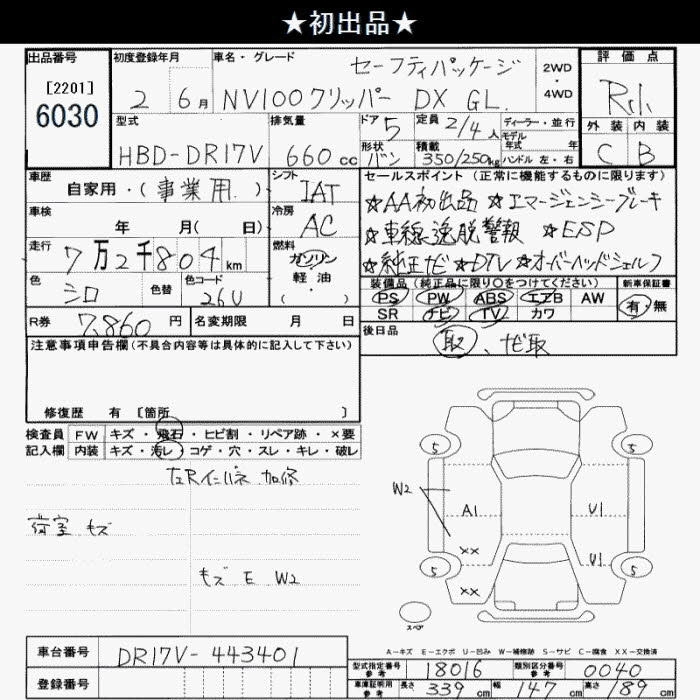 ★初出品★
出品番号
[2201]
6030
初度登録年月
2 6月
車名・グレード
セーフティパッケージ
NV100クリッパー DX GL.
2WD
・
4WD
評価点
R
外装 内装
C B
型式
HBD-DR17V
排気量
660cc
ドア 5
形状 バン
定員 2/4人
積載 350/250kg
ディーラー・並行
モデル年式 年
ハンドル 左・右
車歴
自家用・(事業用)
シフト
IAT
車検
年 月(日)
冷房
AC
走行
7万2千804km
燃料
ガソリン
軽油
(・)
色
シロ
色替
色コード
26U
R券 7,860円
名変期限 月 日
セールスポイント (正常に機能するものに限ります)
☆AA初出品 ☆エマージェンシーブレーキ
☆車線逸脱警報 ☆ESP
☆純正ナビ ☆DTV ☆オーバーヘッドシェルフ
装備品(純正品に限り○をつけてください)
PS PW ABS エアB AW
SR ナビ TV カワ
新車保証書
有・無
後日品
取、ナビ取
注意事項申告欄(不具合内容等は具体的に記入して下さい)
修復歴 有 [箇所 ]
検査員記入欄
FW キズ・飛石・ヒビ割・リペア跡・×要
内装 キズ・汚レ・コゲ・穴・スレ・キレ・破レ
左Rインパネ 加修
荷室 キズ
キズ E W2
5 5
W2 A1 U1
XX U1
5 5
XX
スペア
A-キズ E-エクボ U-凹み W-補修跡 S-サビ C-腐食 XX-交換済
車台番号 DR17V-443401
登録番号
型式指定番号参考 18016
類別区分番号参考 0040
車庫証明用参考 長さ 339cm 幅 147cm 高さ 189cm